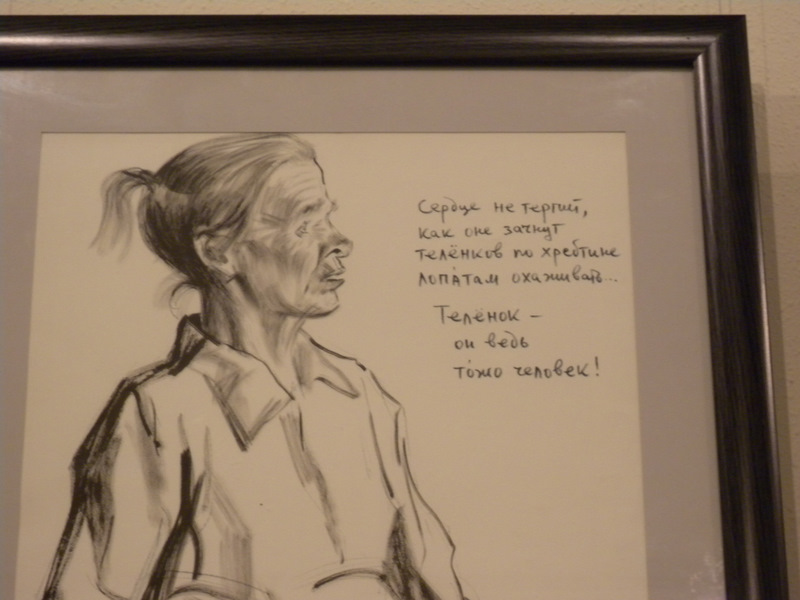 Сердце не терпит,
как оне зачнут
телёнков по хребтине
лопáтам охаживать...
Телёнок –
он ведь
тóжо человек!